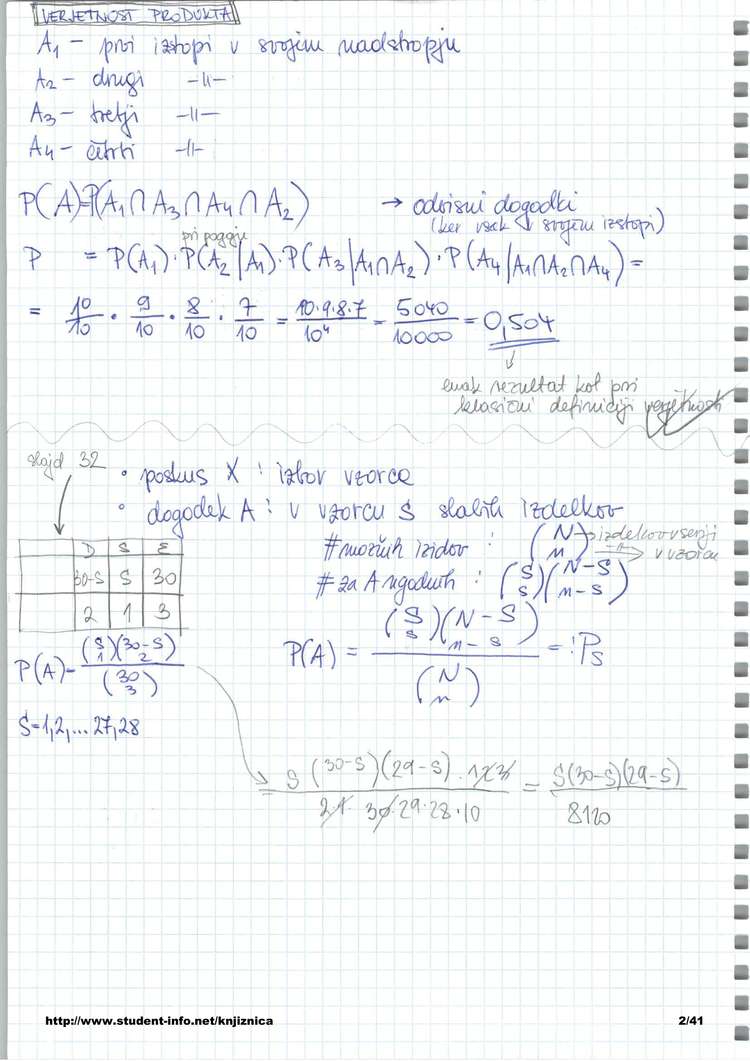 VERJETNOST PRODUKTA
A1 – prvi izstopi v svojim nadstropju
A2 – drugi –||–
A3 – tretji –||–
A4 – četrti –||–
P(A)=P(A1∩A3∩A4∩A2) → odvisni dogodki
(ker vsak v svojim izstopi)
pri pogoju
P = P(A1)·P(A2|A1)·P(A3|A1∩A2)·P(A4|A1∩A2∩A4) =
= 10/10 · 9/10 · 8/10 · 7/10 = 10·9·8·7/10⁴ = 5040/10000 = 0,504
enak rezultat kot pri
klasični definiciji verjetnosti
slajd 32
• poskus X : izbor vzorca
• dogodek A : v vzorcu s slabih izdelkov
D S Σ
30-S S 30
2 1 3
# možnih izidov : (N n) izdelkov v seriji
v vzorcu
# za A ugodnih : (S s)(N-S n-s)
P(A) = (S s)(N-S n-s) / (N n) =: Ps
P(A) = (S 1)(30-S 2) / (30 3)
S=1,2,...27,28
= S(30-S)(29-S)·1·2·3 / 2·1·30·29·28·10 = S(30-S)(29-S) / 8120
http://www.student-info.net/knjiznica 2/41